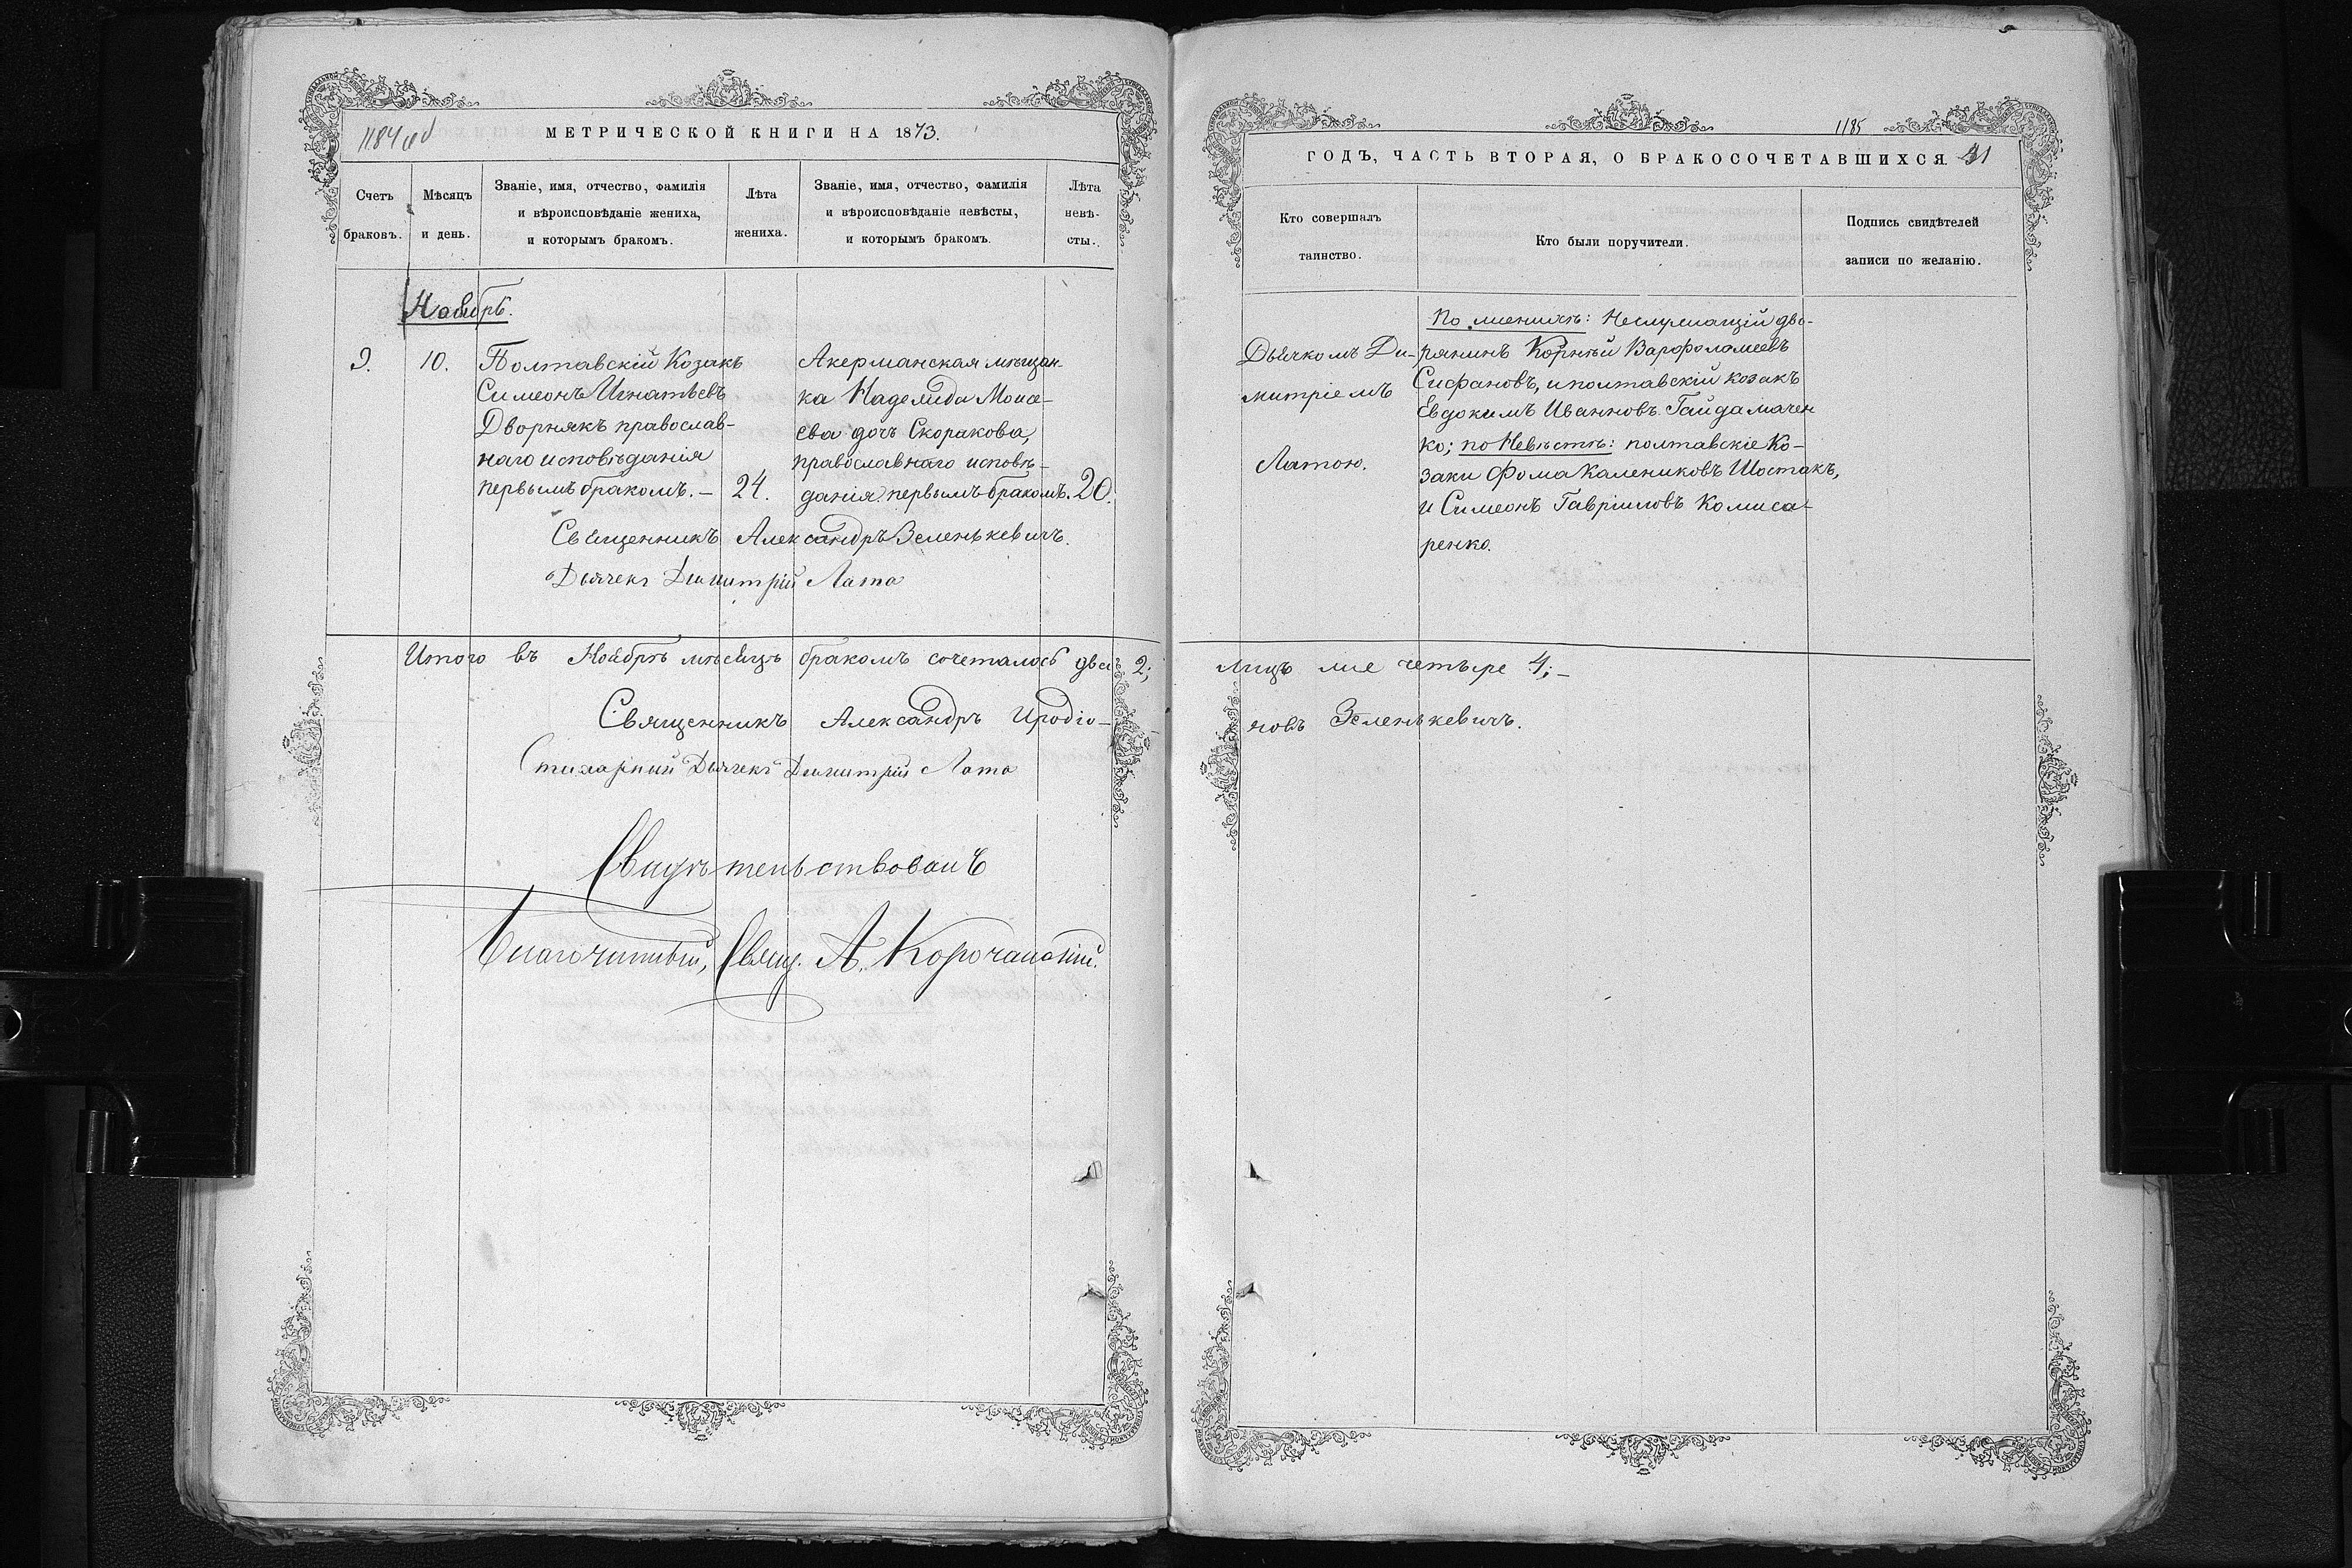 1184 об
МЕТРИЧЕСКОЙ КНИГИ НА 1873.
Счетъ браковъ.
Мѣсяцъ и день.
Званіе, имя, отчество, фамилія
и вѣроисповѣданіе жениха,
и которымъ бракомъ.
Лѣта жениха.
Званіе, имя, отчество, фамилія
и вѣроисповѣданіе невѣсты,
и которымъ бракомъ.
Лѣта невѣ-
сты.
Ноябрь.
9. 10. Полтавскій Козакъ
Симеонъ Игнатьевъ
Дворнякъ православ-
наго исповѣданія
первымъ бракомъ. — 24.
Акерманская мѣщан-
ка Моисе-
ева дочь Скоракова,
православнаго исповѣ-
данія первымъ бракомъ. 20.
Священникъ Александръ Зеленькевичъ.
Дьячекъ Димитрій Лата
Итого въ Ноябрѣ мѣсяцѣ бракомъ сочеталось два 2;
Священникъ Александръ Иродіо-
Стихарный Дьячекъ Димитрій Лата
Свидѣтельствовалъ
Благочинный, Свящ. А. Корочанскій.
1185
ГОДЪ, ЧАСТЬ ВТОРАЯ, О БРАКОСОЧЕТАВШИХСЯ. 41
Кто совершалъ
таинство.
Кто были поручители.
Подпись свидѣтелей
записи по желанію.
Дьячкомъ Ди-
митріемъ
Латою.
По женихѣ: Неслужащій дво-
рянинъ Корнѣй Варфоломеевъ
Сисфановъ, и полтавскій козакъ
Евдокимъ Ивановъ Гайдамачен
ко; по Невѣстѣ: полтавскіе Ко-
заки Фома Калениковъ Шостакъ,
и Симеонъ Гавріиловъ Комиса-
ренко.
лицъ же четыре 4; —
новъ Зеленькевичъ.